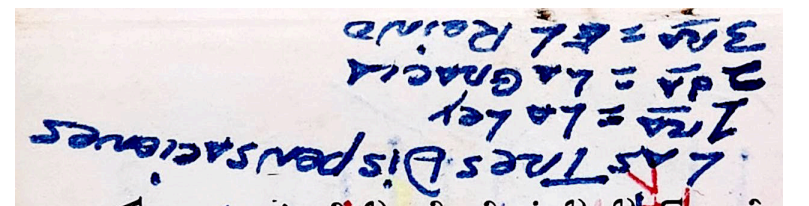 LAS Tres Dispensaciones
1RA = LA Ley
2dA = LA GRACIA
3RA = EL ReinO